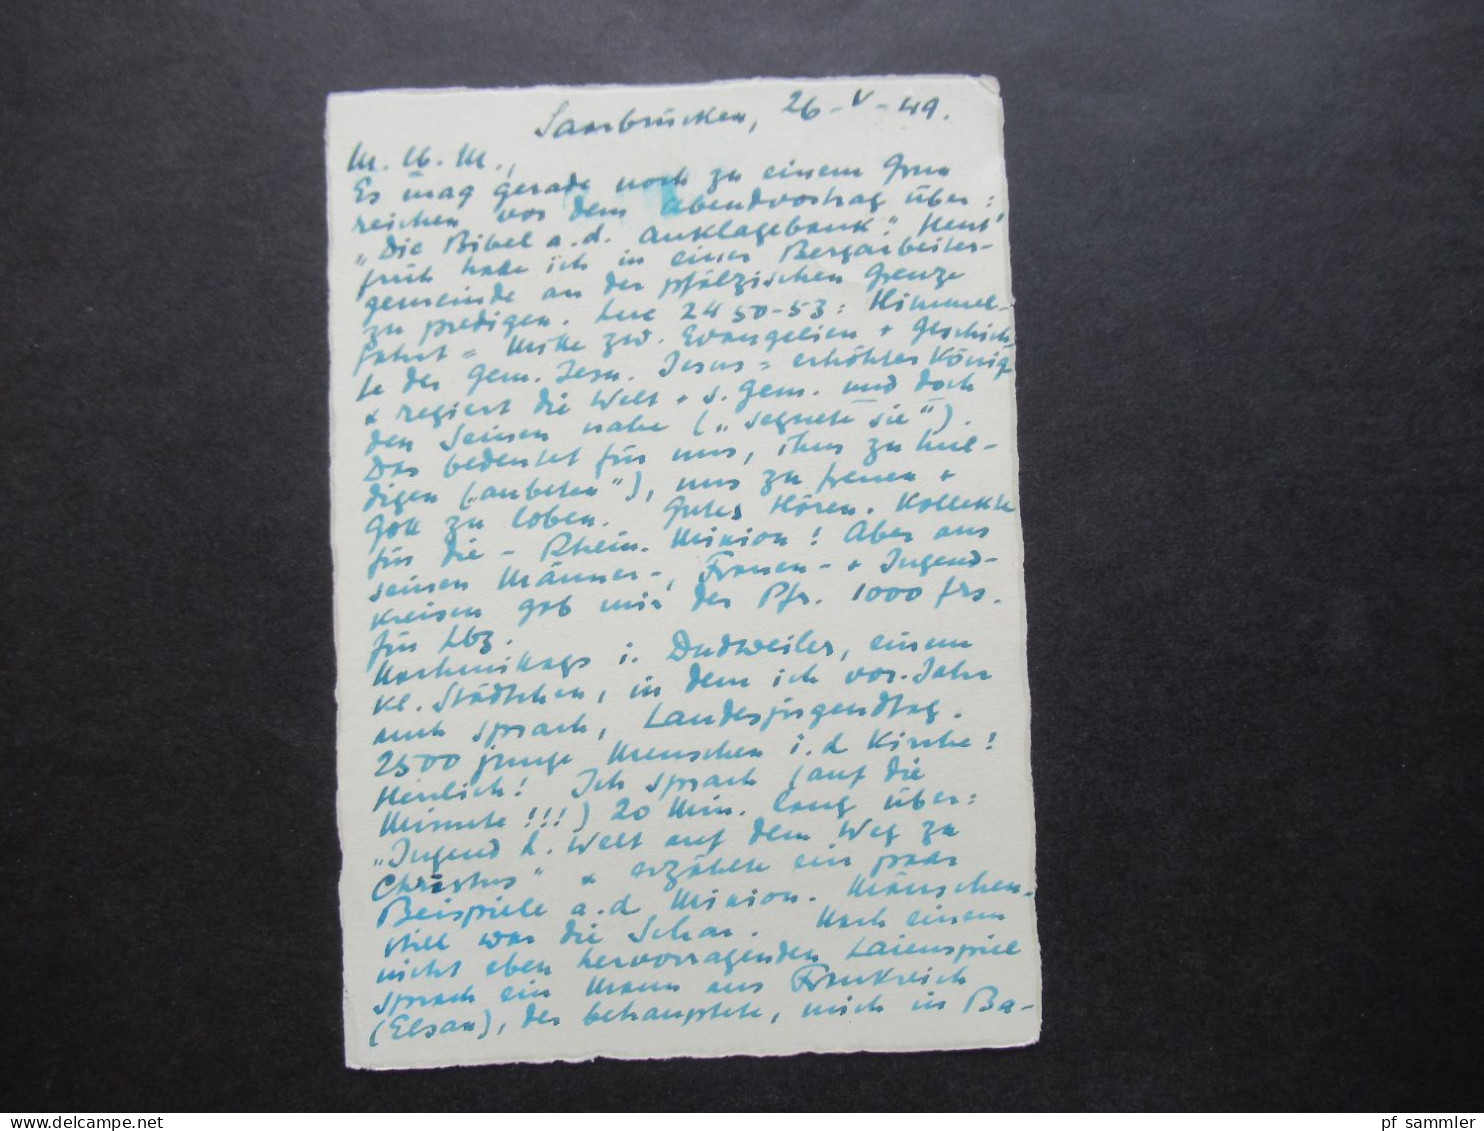 Saarbrücken, 26-V-49.
M. lb. M.,
Es mag gerade noch zu einem Gruss
reichen vor dem Abendvortrag über:
„Die Bibel a.d. Anklagebank". Heut'
früh habe ich in einer Bergarbeiter-
gemeinde an der pfälzischen Grenze
zu predigen. Luc 24 50-53: Himmel-
fahrt = Mitte zw. Evangelien + Geschich-
te der Gem. Jesu. Jesus = erhöhter König
& regiert die Welt + s. Gem. und doch
den Seinen nahe („segnete sie").
Das bedeutet für uns, ihm zu hul-
digen („anbeten"), uns zu freuen +
Gott zu loben. Gutes Hören. Kollekte
für die - Rhein. Mission! Aber aus
seinen Männer-, Frauen- + Jugend-
kreisen gab mir der Pfr. 1000 frs.
für Lbz.
Nachmittags i. Dudweiler, einem
kl. Städtchen, in dem ich vor. Jahr
auch sprach, Landesjugendtag.
2500 junge Menschen i.d Kirche!
Herrlich! Ich sprach (auf die
Minute!!!) 20 Min. lang über:
„Jugend d. Welt auf dem Weg zu
Christus" & erzählte ein paar
Beispiele a.d Mission. Mäuschen-
still war die Schar. Nach einem
nicht eben hervorragenden Laienspiel
sprach ein Mann aus Frankreich
(Elsass), der behauptete, mich in Ba-
pf sammler
www.delcampe.net